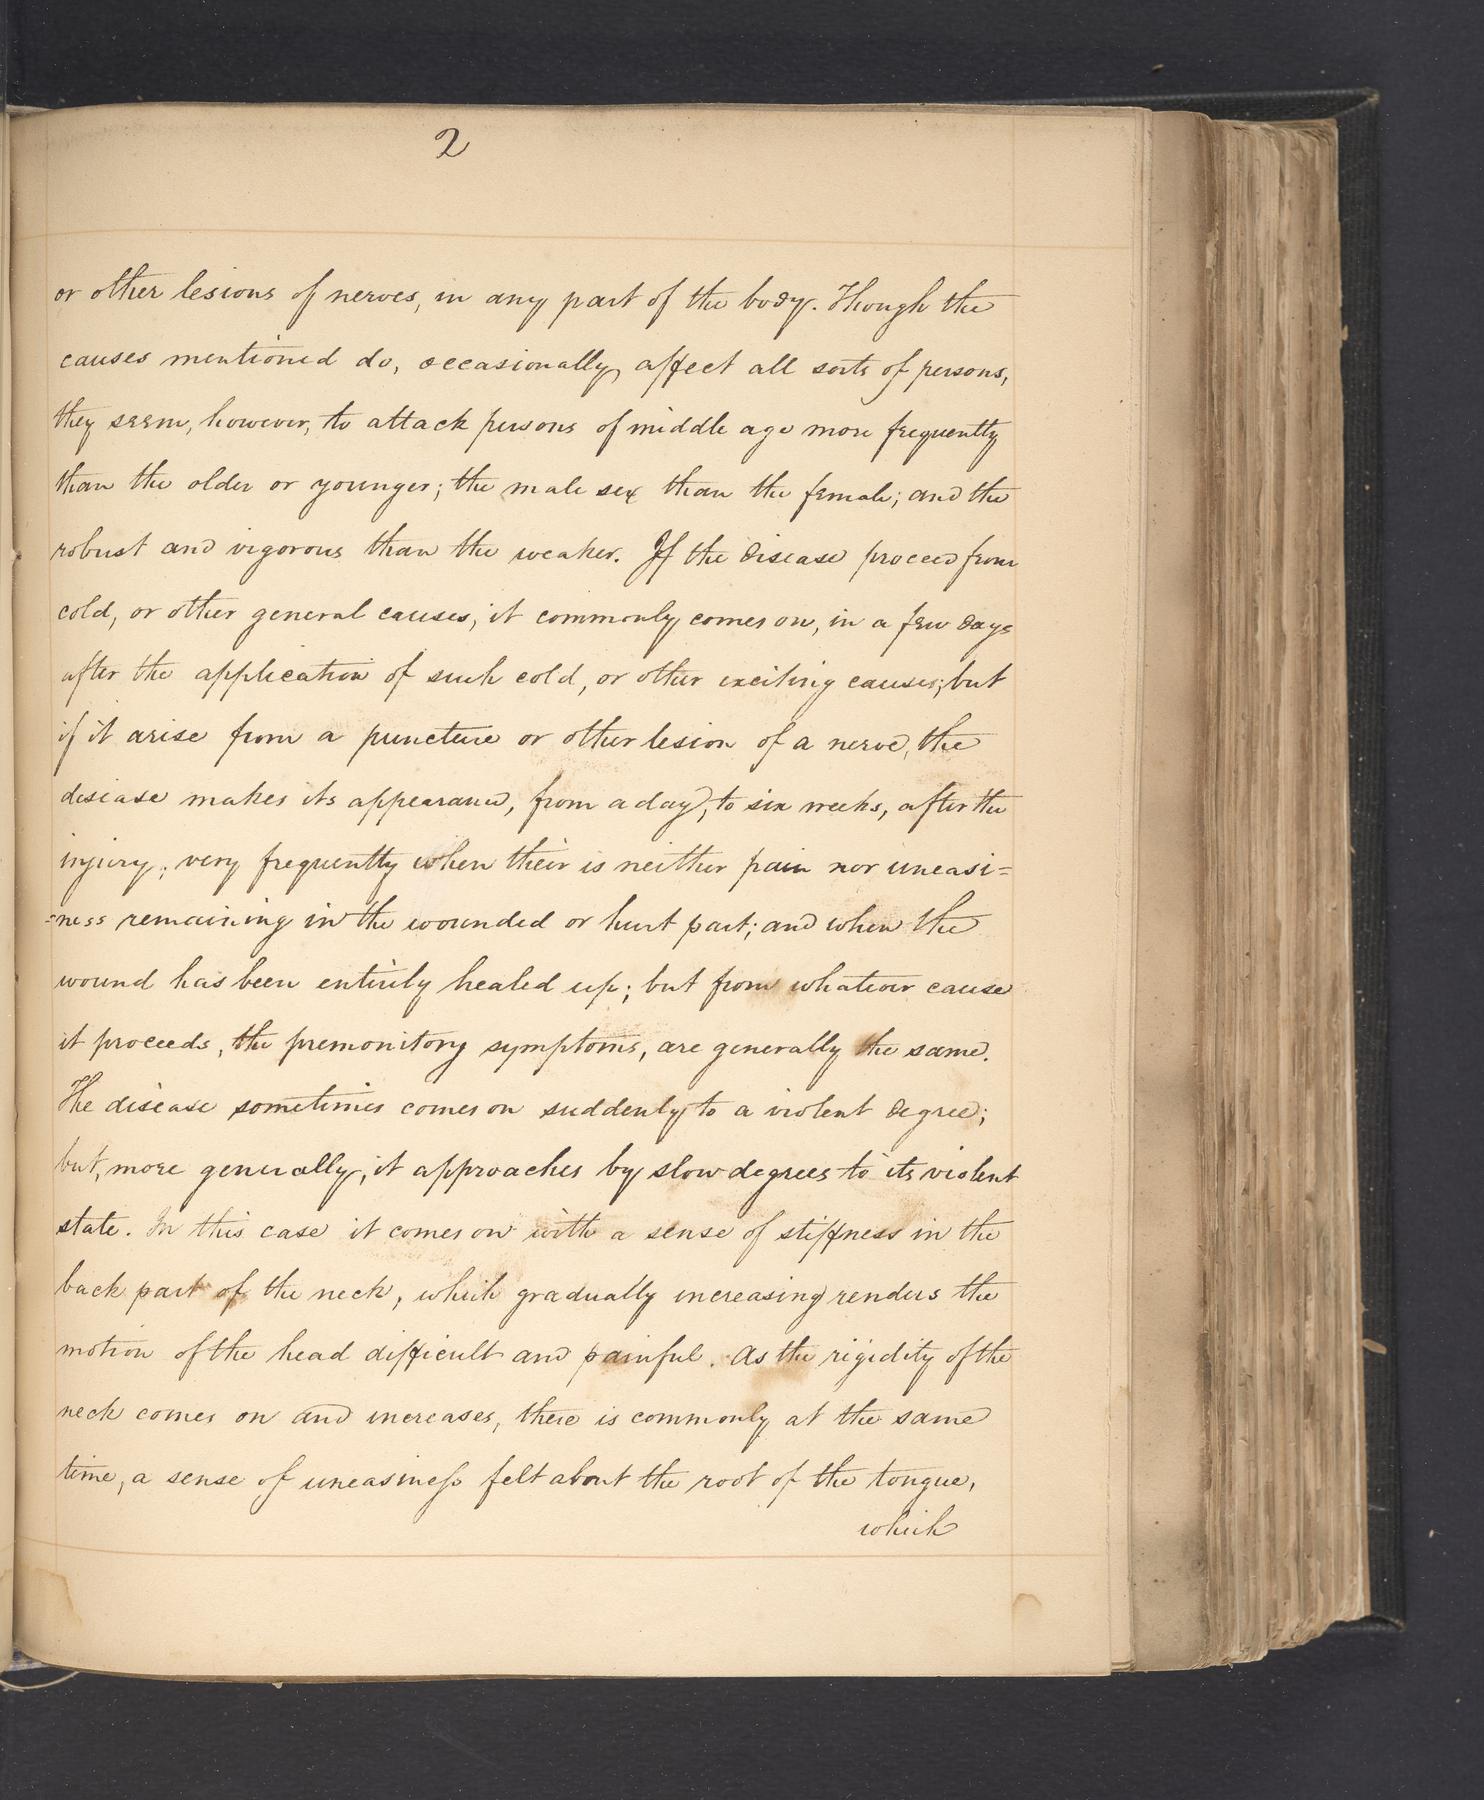 2
or other lesions of nerves, in any part of the body. Though the
causes mentioned do, occasionally, affect all sorts of persons,
they seem, however, to attack persons of middle age more frequently
than the older or younger; the male sex than the female; and the
robust and vigorous than the weaker. If the disease proceed from
cold, or other general causes, it commonly comes on, in a few days
after the application of such cold, or other exciting causes; but
if it arise from a puncture or other lesion of a nerve, the
disease makes its appearance, from a day, to six weeks, after the
injury; very frequently when their is neither pain nor uneasi=
=ness remaining in the wounded or hurt part; and when the
wound has been entirely healed up; but from whatever cause
it proceeds, the premonitory symptoms, are generally the same.
The disease sometimes comes on suddenly to a violent degree;
but, more generally, it approaches by slow degrees to its violent
state. In this case it comes on with a sense of stiffness in the
back part of the neck, which gradually increasing renders the
motion of the head difficult and painful. As the rigidity of the
neck comes on and increases, there is commonly at the same
time, a sense of uneasiness felt about the root of the tongue,
which